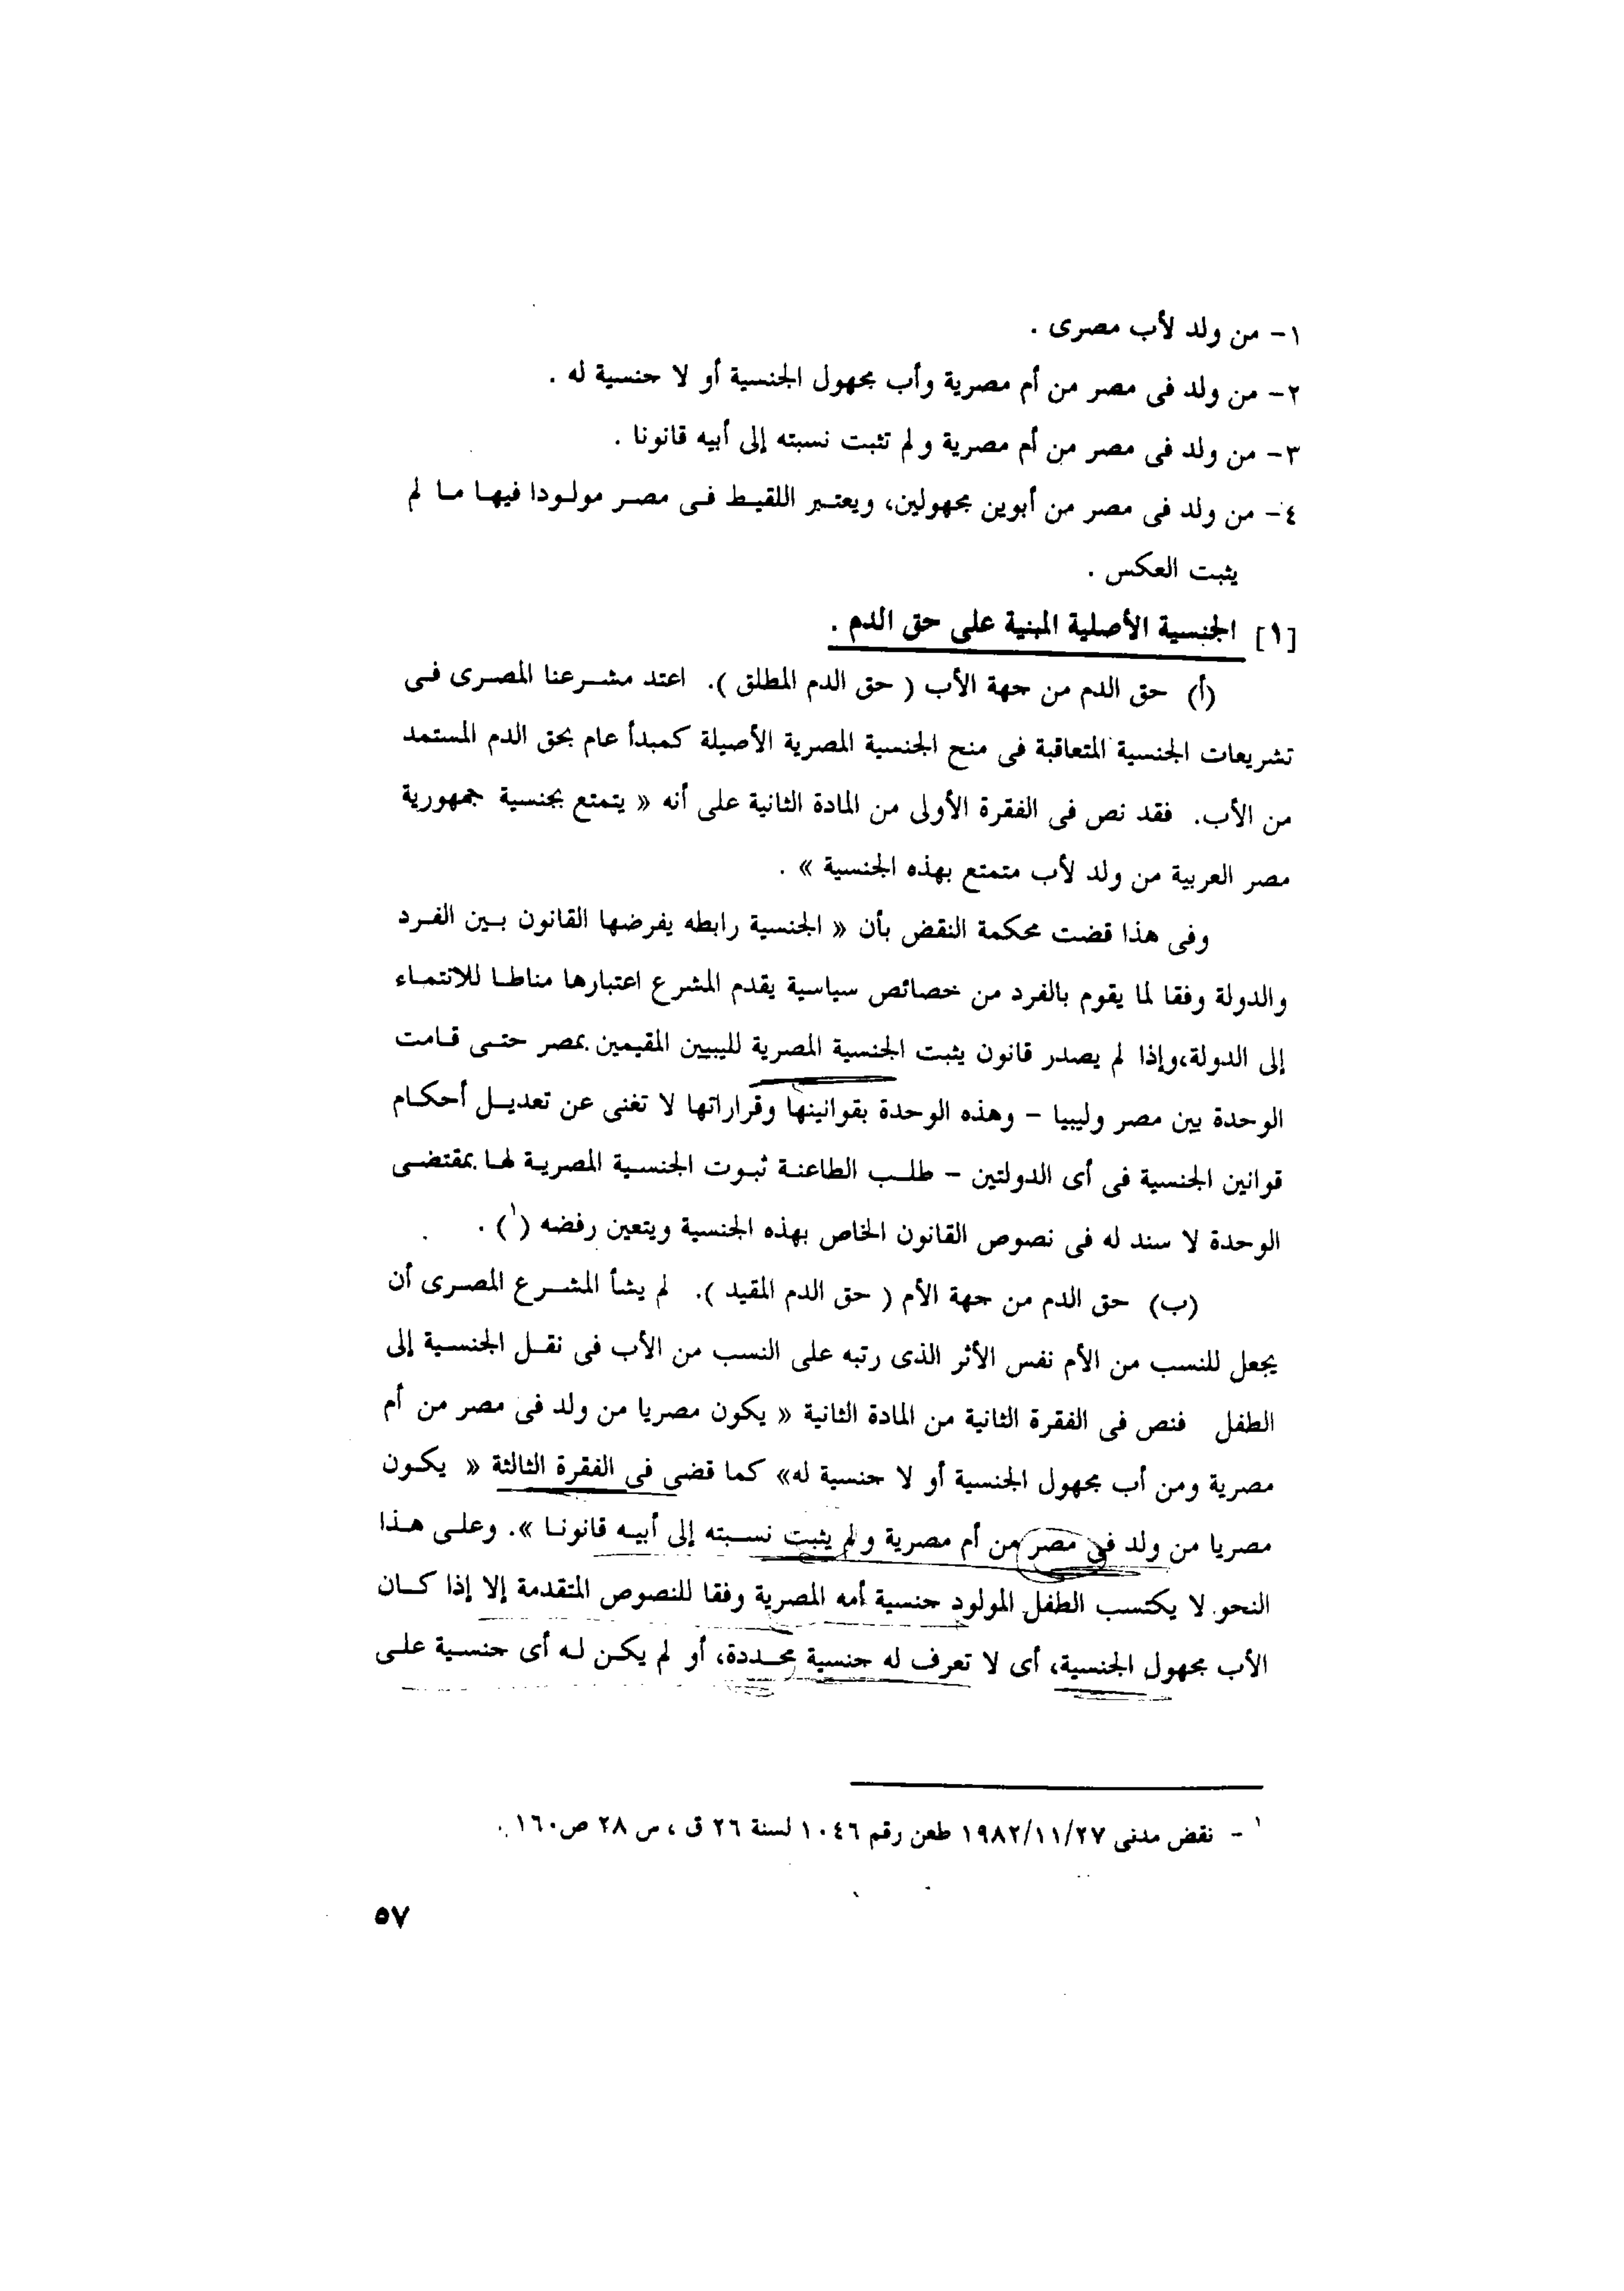 ١- من ولد لأب مصرى .
٢- من ولد فى مصر من أم مصرية وأب مجهول الجنسية أو لا جنسية له .
٣- من ولد فى مصر من أم مصرية ولم تثبت نسبته إلى أبيه قانونا .
٤- من ولد فى مصر من أبوين مجهولين، ويعتبر اللقيط فى مصر مولودا فيها ما لم
يثبت العكس .
[١] الجنسية الأصلية المبنية على حق الدم .
(أ) حق الدم من جهة الأب ( حق الدم المطلق ). اعتد مشرعنا المصرى فى
تشريعات الجنسية المتعاقبة فى منح الجنسية المصرية الأصيلة كمبدأ عام بحق الدم المستمد
من الأب. فقد نص فى الفقرة الأولى من المادة الثانية على أنه « يتمتع بجنسية جمهورية
مصر العربية من ولد لأب متمتع بهذه الجنسية » .
وفى هذا قضت محكمة النقض بأن « الجنسية رابطه يفرضها القانون بين الفرد
والدولة وفقا لما يقوم بالفرد من خصائص سياسية يقدم المشرع اعتبارها مناطا للانتماء
إلى الدولة،وإذا لم يصدر قانون يثبت الجنسية المصرية لليبيين المقيمين بمصر حتى قامت
الوحدة بين مصر وليبيا – وهذه الوحدة بقوانينها وقراراتها لا تغنى عن تعديل أحكام
قوانين الجنسية فى أى الدولتين – طلب الطاعنة ثبوت الجنسية المصرية لها بمقتضى
الوحدة لا سند له فى نصوص القانون الخاص بهذه الجنسية ويتعين رفضه (١) .
(ب) حق الدم من جهة الأم ( حق الدم المقيد ). لم يشأ المشرع المصرى أن
يجعل للنسب من الأم نفس الأثر الذى رتبه على النسب من الأب فى نقل الجنسية إلى
الطفل فنص فى الفقرة الثانية من المادة الثانية « يكون مصريا من ولد فى مصر من أم
مصرية ومن أب مجهول الجنسية أو لا جنسية له» كما قضى فى الفقرة الثالثة « يكون
مصريا من ولد فى مصر من أم مصرية ولم يثبت نسبته إلى أبيه قانونا ». وعلى هذا
النحو لا يكتسب الطفل المولود جنسية أمه المصرية وفقا للنصوص المتقدمة إلا إذا كان
الأب مجهول الجنسية، أى لا تعرف له جنسية محددة، أو لم يكن له أى جنسية على
١ - نقض مدنى ١٩٨٢/١١/٢٧ طعن رقم ١٠٤٦ لسنة ٢٦ ق ، س ٢٨ ص١٦٠ .
٥٧